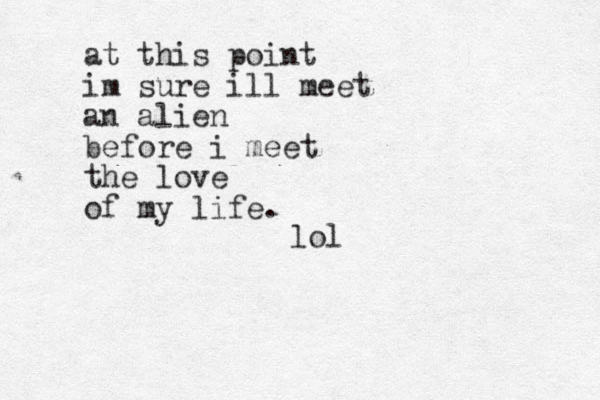 at this point
im sure ill meet
an alien
before i meet
the love
of my life.
lol